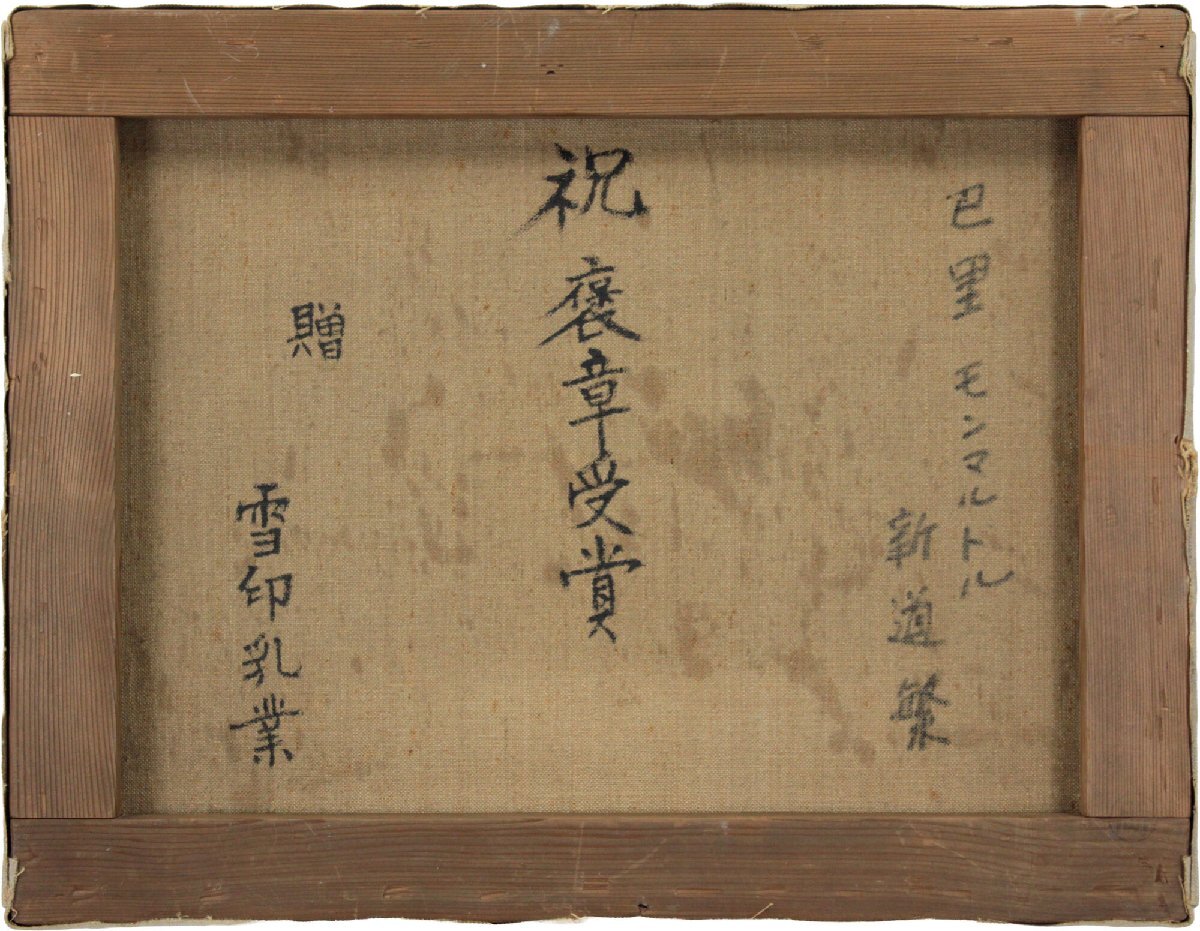 巴里 モンマルトル
新道繁
祝 褒章受賞
贈
雪印乳業